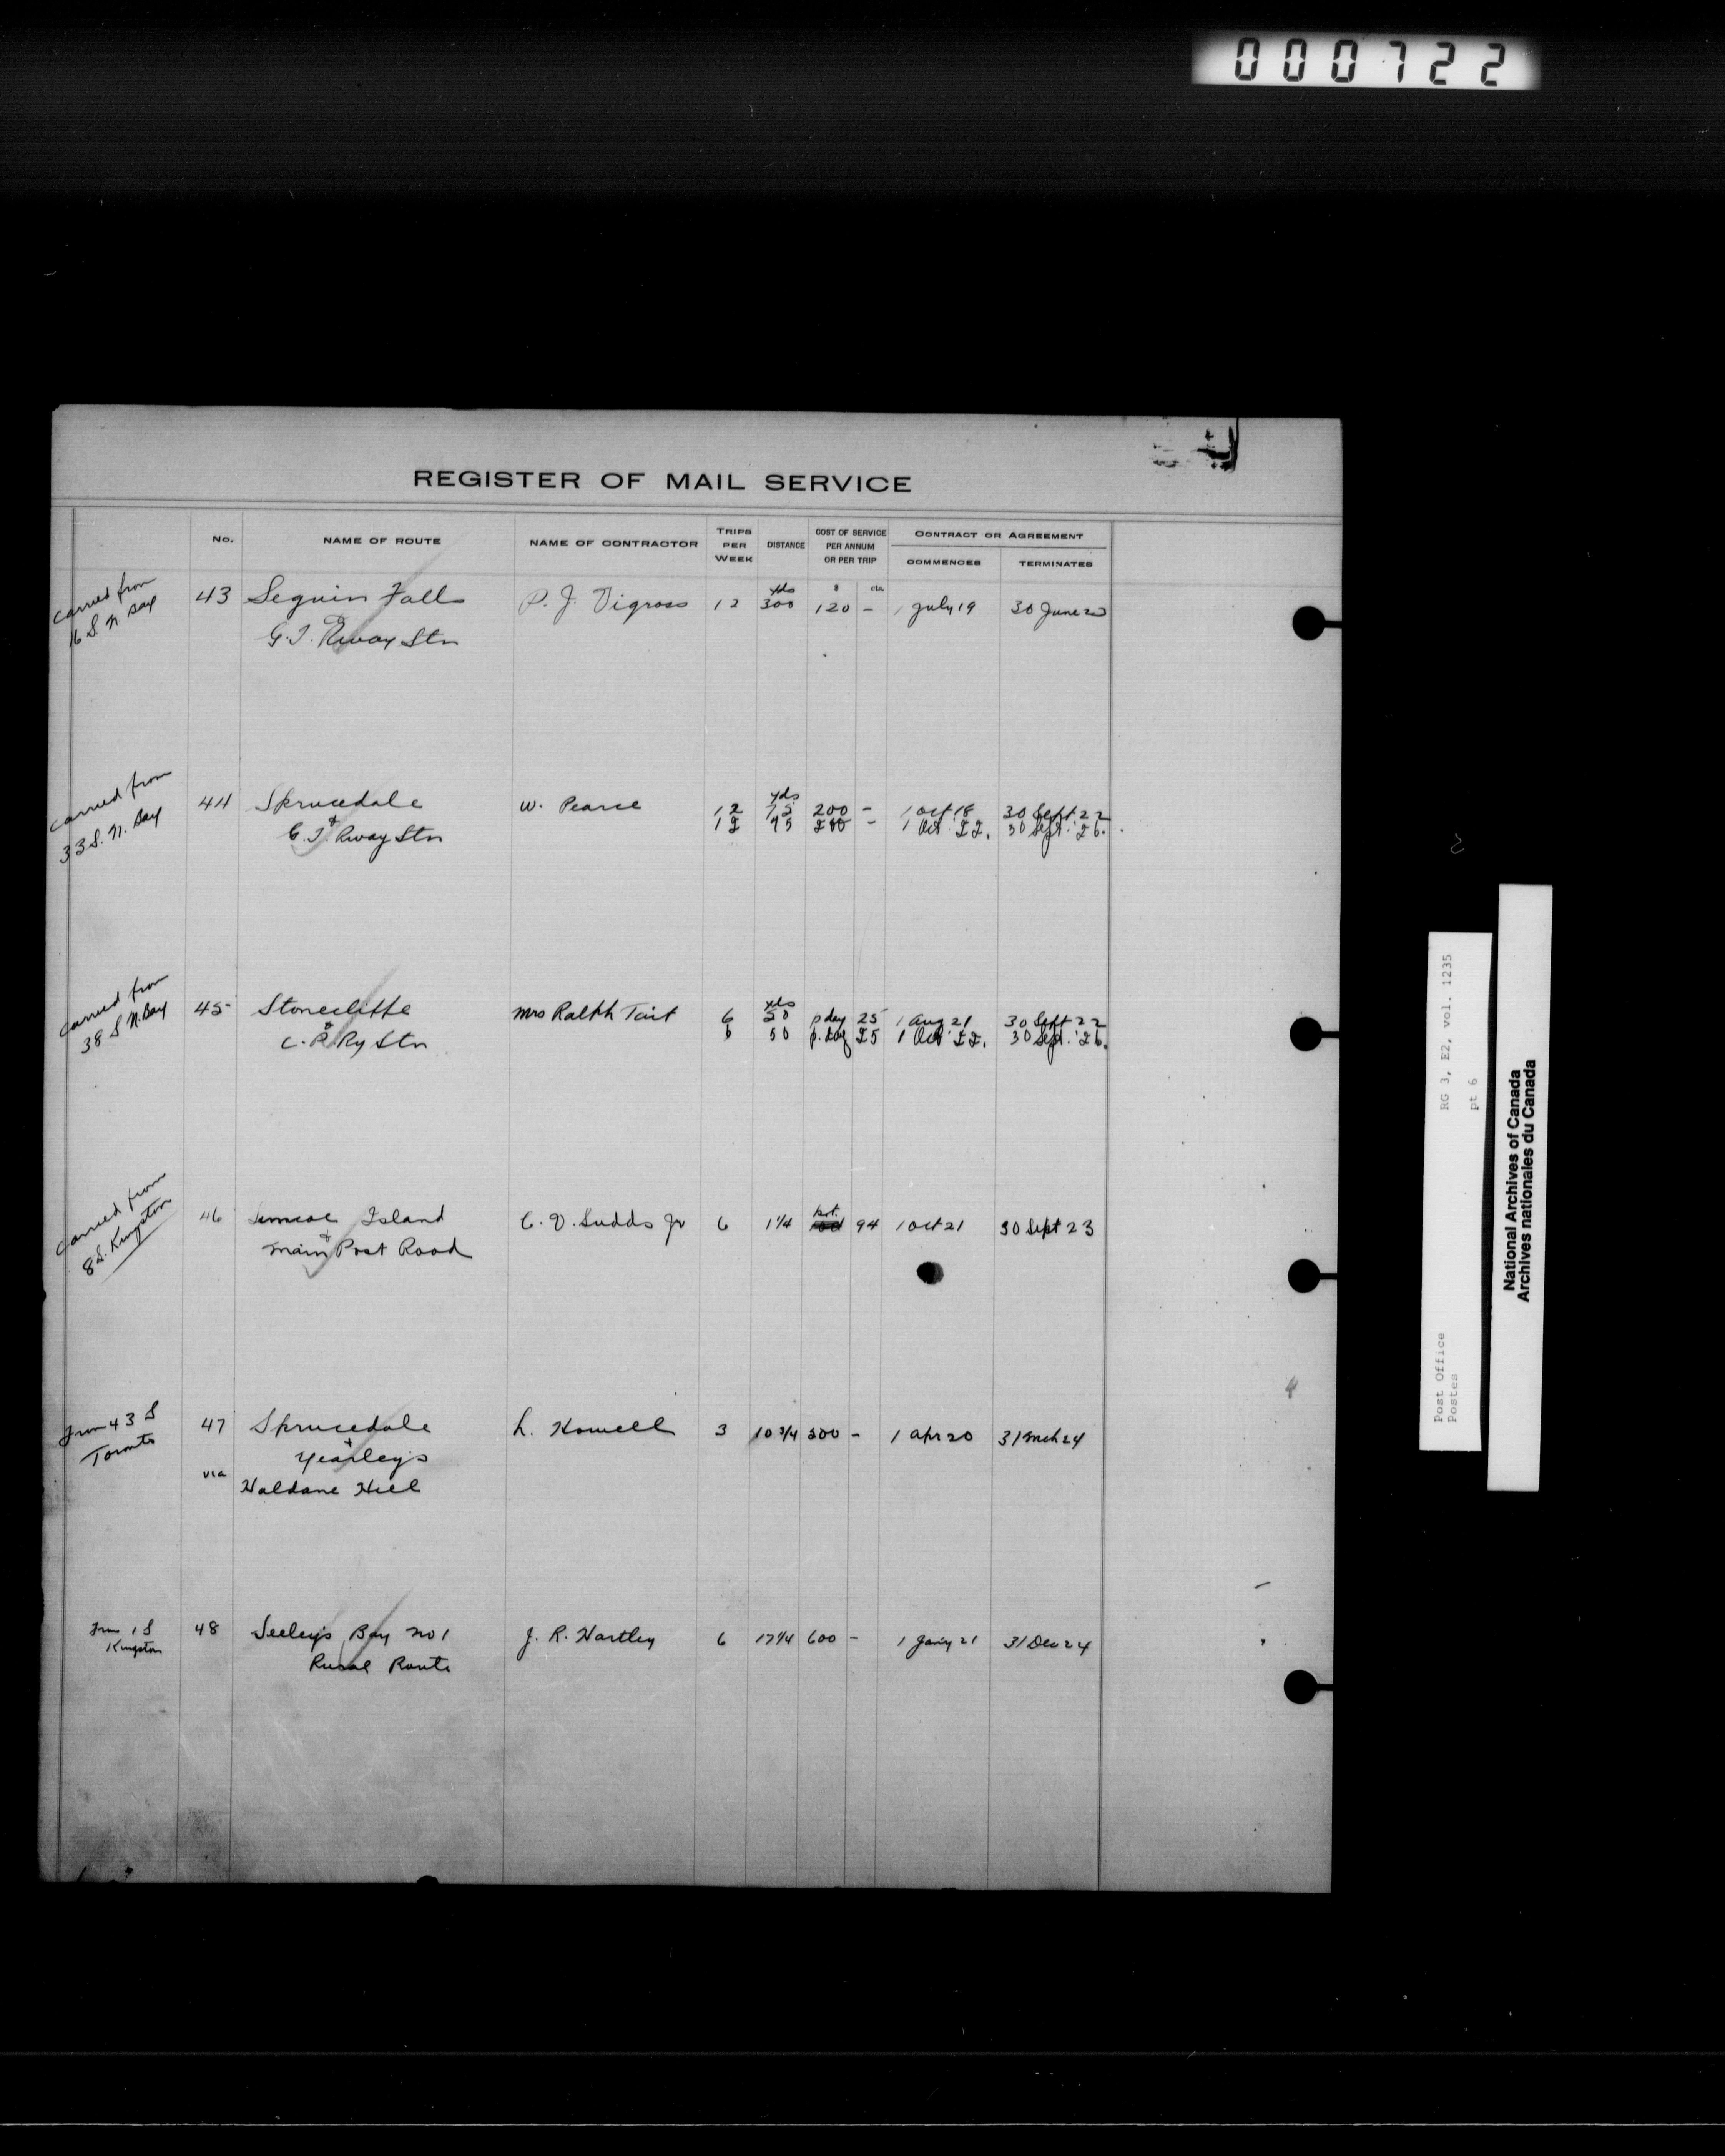 000722
REGISTER OF MAIL SERVICE
No. NAME OF ROUTE NAME OF CONTRACTOR TRIPS PER WEEK DISTANCE COST OF SERVICE PER ANNUM OR PER TRIP CONTRACT OR AGREEMENT
COMMENCES TERMINATES
$ cts.
carried from
16 S. N. Bay
43 Seguin Falls P. J. Vigrass 12 yds 300 120 - 1 July 19 30 June 23
&
G.T. Rway Stn
carried from
33 S. N. Bay
44 Sprucedale W. Pearce 12 yds 75 200 - 1 Oct 18 30 Sept 22
12 75 200 - 1 Oct. 22. 30 Sept. '26.
&
G.T. Rway Stn
carried from
38 S N. Bay
45 Stonecliffe Mrs Ralph Tait 6 yds 50 p day 25 1 Aug 21 30 Sept 22
6 50 p. day 25 1 Oct. 22. 30 Sept. '26.
&
C.P. Ry Stn
carried from
8 S. Kingston
46 Simcoe Island C. V. Sudds Jr 6 1 1/4 94 1 Oct 21 30 Sept 23
&
Main Post Road
From 43 S
Toronto
47 Sprucedale L. Howell 3 10 3/4 300 - 1 Apr 20 31 Mch 24
&
Yearley's
via Haldane Hill
From 1 S
Kingston
48 Seeley's Bay No 1 J. R. Hartley 6 17 1/4 600 - 1 Jany 21 31 Dec 24
Rural Route
4
RG 3, E2, vol. 1235
pt 6
Post Office
Postes
National Archives of Canada
Archives nationales du Canada